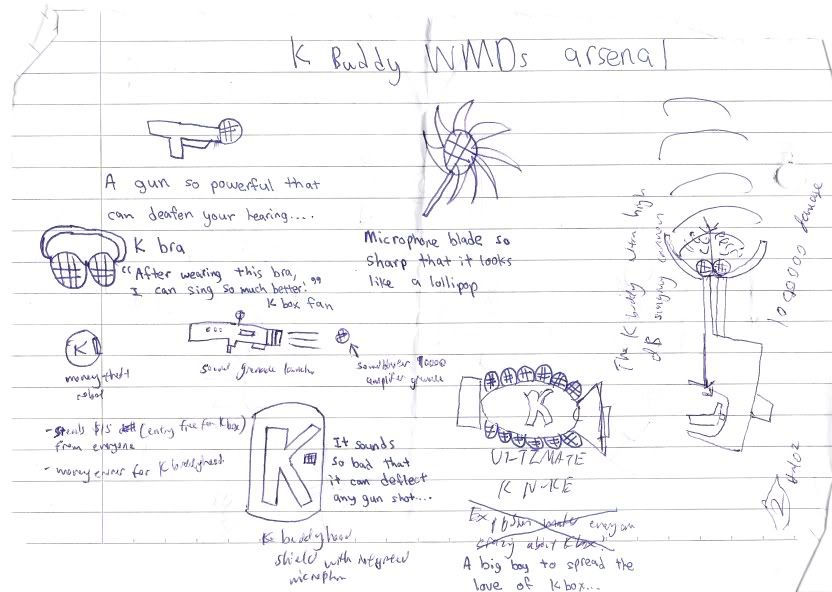 K Buddy WMDs arsenal
A gun so powerful that
can deafen your hearing....
Microphone blade so
sharp that it looks
like a lollipop
K bra
"After wearing this bra,
I can sing so much better!"
K box fan
K
money theft
robot
sound grenade launcher
amplifier grenade
- steals $15 (entry fee for K box)
from everyone
- money for K buddyhood
K
It sounds
so bad that
it can deflect
any gun shot....
K buddyhood
shield with integrated
K
ULTIMATE
K NUKE
Ex
crazy about K box!
A big boy to spread the
love of K box...
The K buddy ultra high
dB singing cannon
damage
2